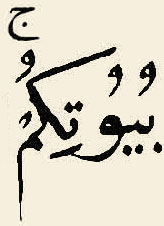 ج
بُيُوتِكُمُ